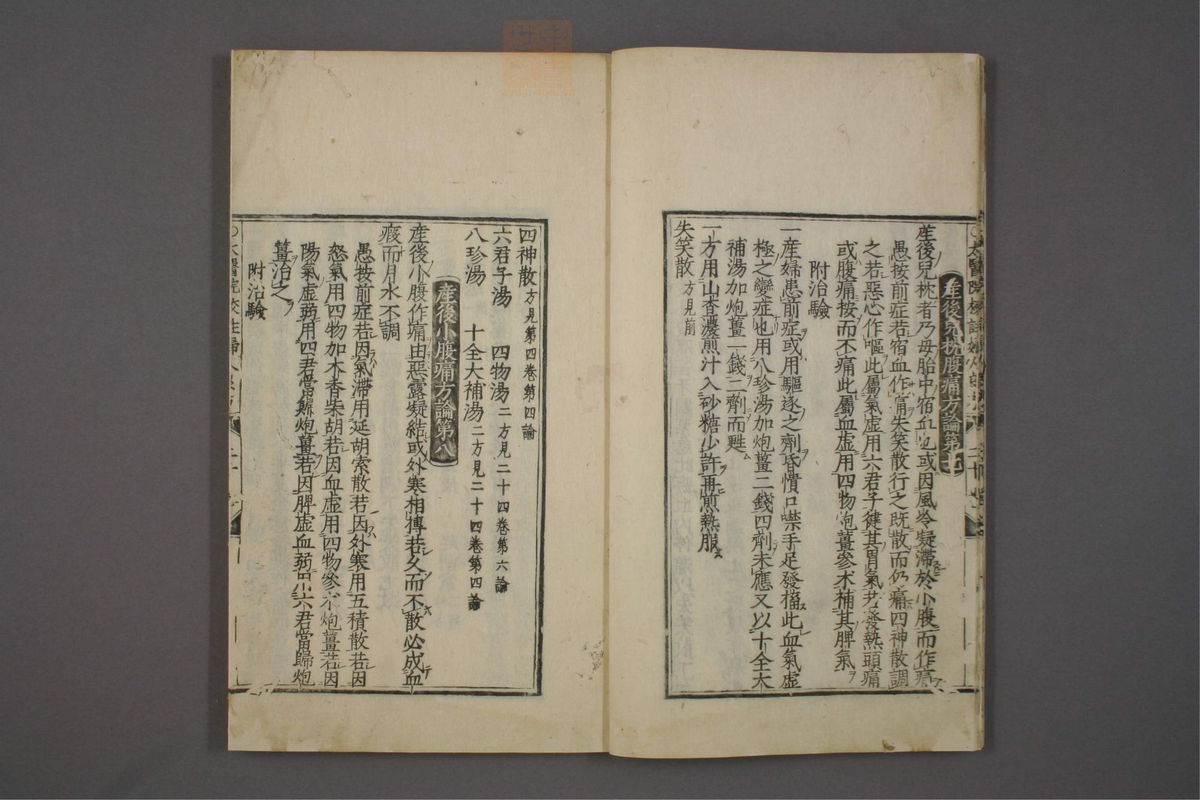 產後兒枕腹痛方論第七
產後兒枕者乃母胎中宿血也或因風冷凝滯於小腹而作痛
愚按前症若宿血作痛失笑散行之既散而仍痛四神散調
之若惡心作嘔此屬氣虛用六君子健其胃氣若發熱頭痛
或腹痛按而不痛此屬血虛用四物炮薑參朮補其脾氣
附治驗
一產婦患前症或用驅逐之劑昏憒口噤手足發搐此血氣虛
極之變症也用八珍湯加炮薑二錢四劑未應又以十全大
補湯加炮薑一錢二劑而甦
一方用山查濃煎汁入砂糖少許再煎熱服
失笑散方見前
四神散方見第四卷第四論
六君子湯 四物湯二方見二十四卷第六論
八珍湯 十全大補湯二方見二十四卷第四論
產後小腹痛方論第八
產後小腹作痛由惡露凝結或外寒相搏若久而不散必成血
瘕而月水不調
愚按前症若因氣滯用延胡索散若因外寒用五積散若因
怒氣用四物加木香柴胡若因血虛用四物參朮炮薑若因
陽氣虛弱用四君當歸炮薑若因脾虛血弱用六君當歸炮
薑治之
附治驗